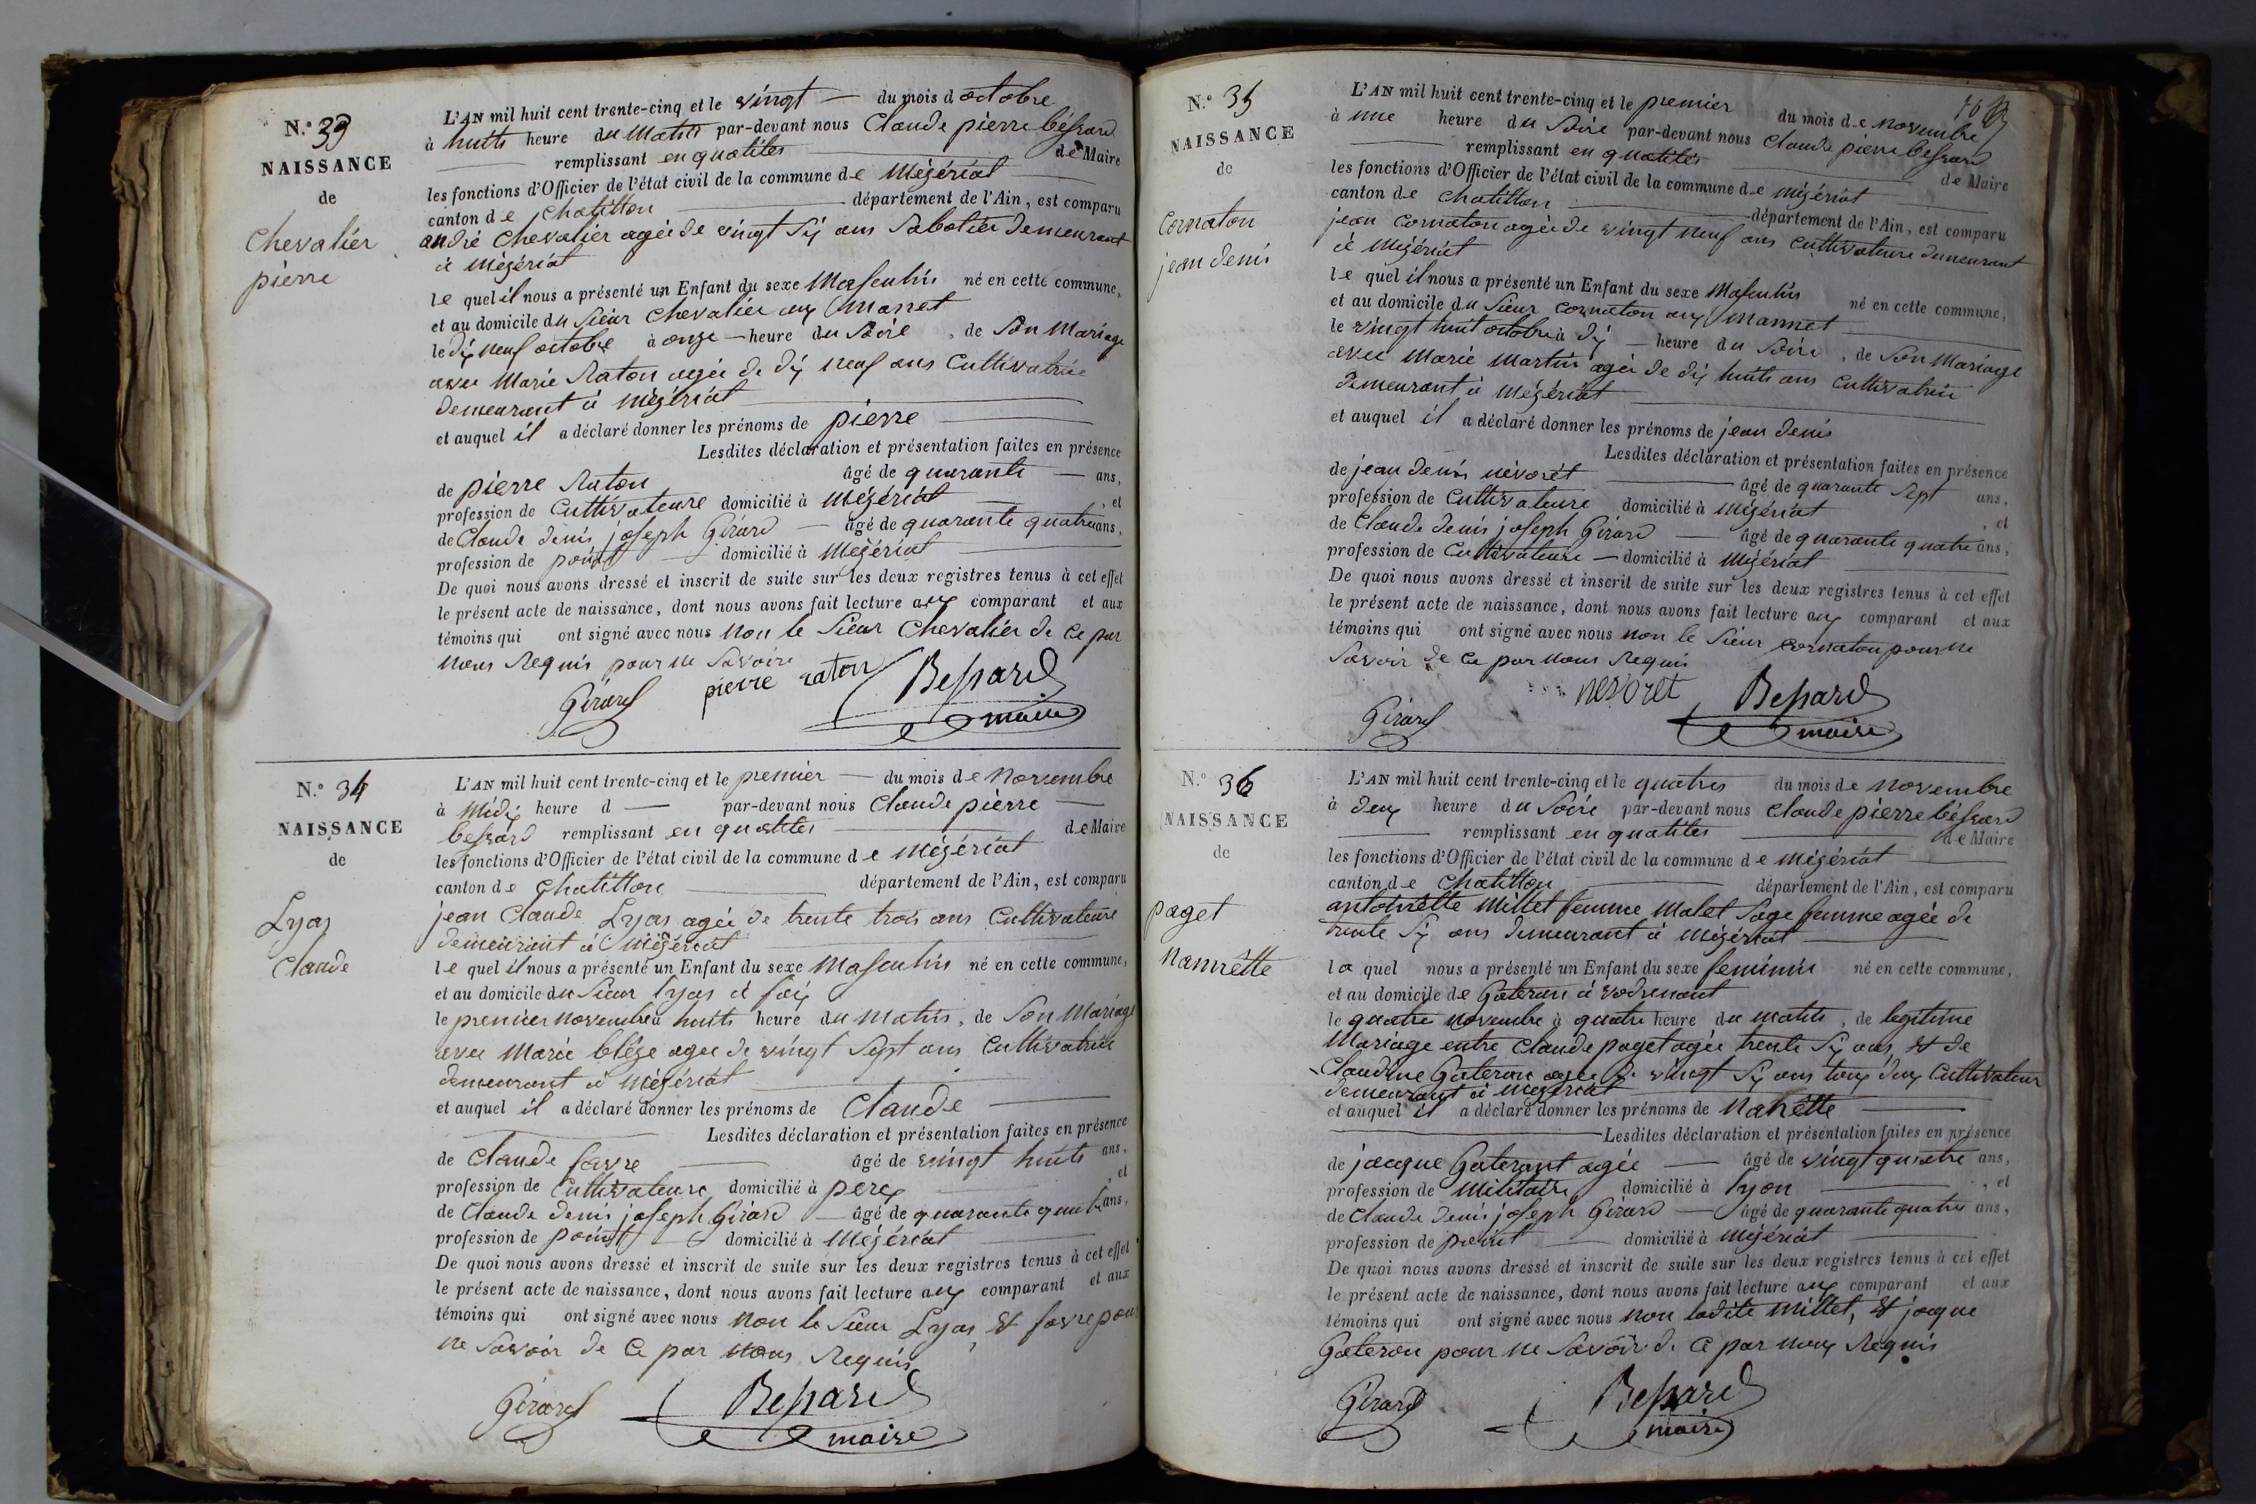 N.° 33
NAISSANCE
de
Chevalier
pierre
L'AN mil huit cent trente-cinq et le vingt — du mois d octobre
à huits heure du Matin par-devant nous Claude pierre béssard
remplissant en qualités de Maire
les fonctions d'Officier de l'état civil de la commune de Mézériat
canton de Chatillon département de l'Ain, est comparu
andré Chevalier agée de vingt Six ans Sabotier Demeurant
à Mézériat
le quel il nous a présenté un Enfant du sexe Masculin né en cette commune,
et au domicile du Sieur Chevalier aux Mannet
le dix neuf octobre à onze — heure du Soire, de Son Mariage
avec Marie Raton agée de dix neuf ans Cultivatrice
demeurant à Mézériat
et auquel il a déclaré donner les prénoms de pierre
Lesdites déclaration et présentation faites en présence
de pierre Raton âgé de quarante — ans,
profession de Cultivateure domicilié à Mézériat, et
de Claude denis joseph Girard — âgé de quarante quatre ans,
profession de domicilié à Mézériat
De quoi nous avons dressé et inscrit de suite sur les deux registres tenus à cet effet
le présent acte de naissance, dont nous avons fait lecture aux comparant et aux
témoins qui ont signé avec nous Non le Sieur Chevalier de Ce par
Nous Requis pour ne Savoire
Girard pierre raton Bessard
maire
N.° 34
NAISSANCE
de
Lyas
Claude
L'AN mil huit cent trente-cinq et le premier — du mois de Novembre
à Midix heure d — par-devant nous Claude pierre —
bessard remplissant en qualités de Maire
les fonctions d'Officier de l'état civil de la commune de Mézériat
canton de Chatillon département de l'Ain, est comparu
jean Claude Lyas agée de trente trois ans Cultivateure
demeurant à Mézériat
le quel il nous a présenté un Enfant du sexe Masculin né en cette commune,
et au domicile du Sieur Lyas à
le premier Novembre à huits heure du Matin, de Son Mariage
avec Marie blége agée de vingt Sept ans Cultivatrice
demeurant à Mézériat
et auquel il a déclaré donner les prénoms de Claude
Lesdites déclaration et présentation faites en présence
de Claude favre âgé de vingt huits ans,
profession de Cultivateure domicilié à perex, et
de Claude denis joseph Girard — âgé de quarante quatre ans,
profession de domicilié à Mézériat
De quoi nous avons dressé et inscrit de suite sur les deux registres tenus à cet effet
le présent acte de naissance, dont nous avons fait lecture aux comparant et aux
témoins qui ont signé avec nous Non le Sieur Lyas, et favre pour
ne Savoir de Ce par Nous Requis
Girard Bessard
maire
N.° 35
NAISSANCE
de
Cornaton
jean denis
L'AN mil huit cent trente-cinq et le premier du mois de Novembre
à une heure du Soire par-devant nous Claude pierre bessard
remplissant en qualités de Maire
les fonctions d'Officier de l'état civil de la commune de Mézériat
canton de Chatillon département de l'Ain, est comparu
jean Cornaton agée de vingt neuf ans Cultivateure demeurant
à Mézériat
le quel il nous a présenté un Enfant du sexe Masculin né en cette commune,
et au domicile du Sieur Cornaton aux Mannet
le vingt huit octobre à dix — heure du Soire, de Son Mariage
avec Marie Martin agée de dix huits ans Cultivatrice
demeurant à Mézériat
et auquel il a déclaré donner les prénoms de jean denis
Lesdites déclaration et présentation faites en présence
de jean denis névorét âgé de quarante Sept ans,
profession de Cultivateure domicilié à Mézériat, et
de Claude denis joseph Girard — âgé de quarante quatre ans,
profession de Cultivateure — domicilié à Mézériat
De quoi nous avons dressé et inscrit de suite sur les deux registres tenus à cet effet
le présent acte de naissance, dont nous avons fait lecture aux comparant et aux
témoins qui ont signé avec nous Non le Sieur Cornaton pour ne
Savoir de Ce par Nous Requis
Girard nevoret Bessard
maire
N.° 36
NAISSANCE
de
paget
Nannètte
L'AN mil huit cent trente-cinq et le quatres du mois de Novembre
à deux heure du Soire par-devant nous Claude pierre béssard
remplissant en qualités de Maire
les fonctions d'Officier de l'état civil de la commune de Mézériat
canton de Chatillon département de l'Ain, est comparu
antoinette Millet femme Malet Sage femme agée de
trente Six ans demeurant à Mézériat
la quel nous a présenté un Enfant du sexe feminin né en cette commune,
et au domicile de Gateron à vodrenant
le quatre novembre à quatre heure du matin, de legitime
Mariage entre Claude paget agée trente Six ans et de
Claudine Gateron agée de vingt Six ans tous deux Cultivateur
demeurant à Mézériat
et auquel il a déclaré donner les prénoms de Nanètte
Lesdites déclaration et présentation faites en présence
de jacque Gaterant agée — âgé de vingt quatre ans,
profession de Militaire domicilié à lyon, et
de Claude denis joseph Girard — âgé de quarante quatre ans,
profession de domicilié à Mézériat
De quoi nous avons dressé et inscrit de suite sur les deux registres tenus à cet effet
le présent acte de naissance, dont nous avons fait lecture aux comparant et aux
témoins qui ont signé avec nous Non ladite Millet, et jacque
Gateron pour ne Savoir de Ce par nous Requis
Girard Bessard
maire